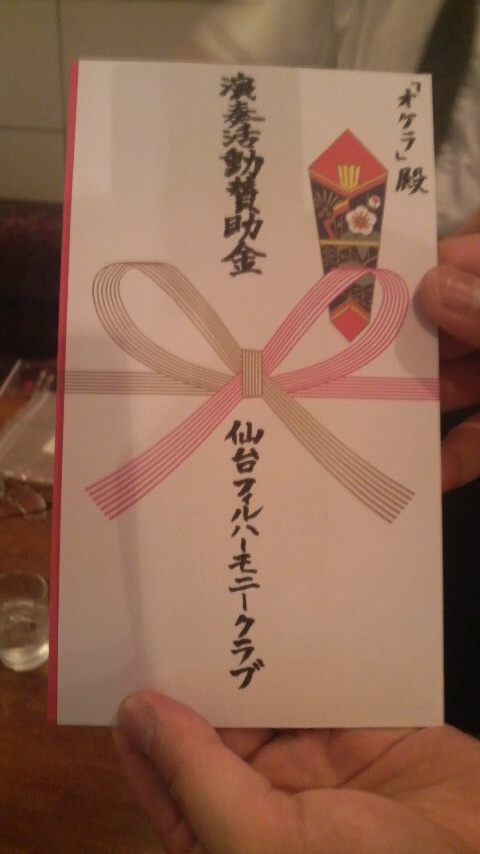 「オケラ」殿
演奏活動賛助金
仙台フィルハーモニークラブ